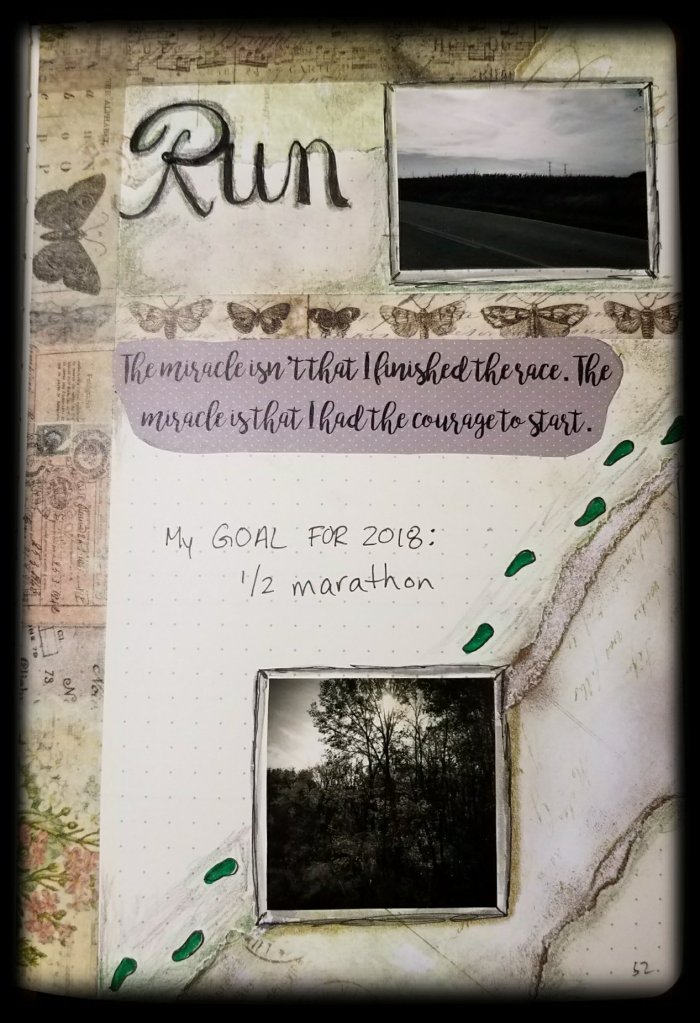 Run
The miracle isn't that I finished the race. The
miracle is that I had the courage to start.
My GOAL FOR 2018:
1/2 marathon
52